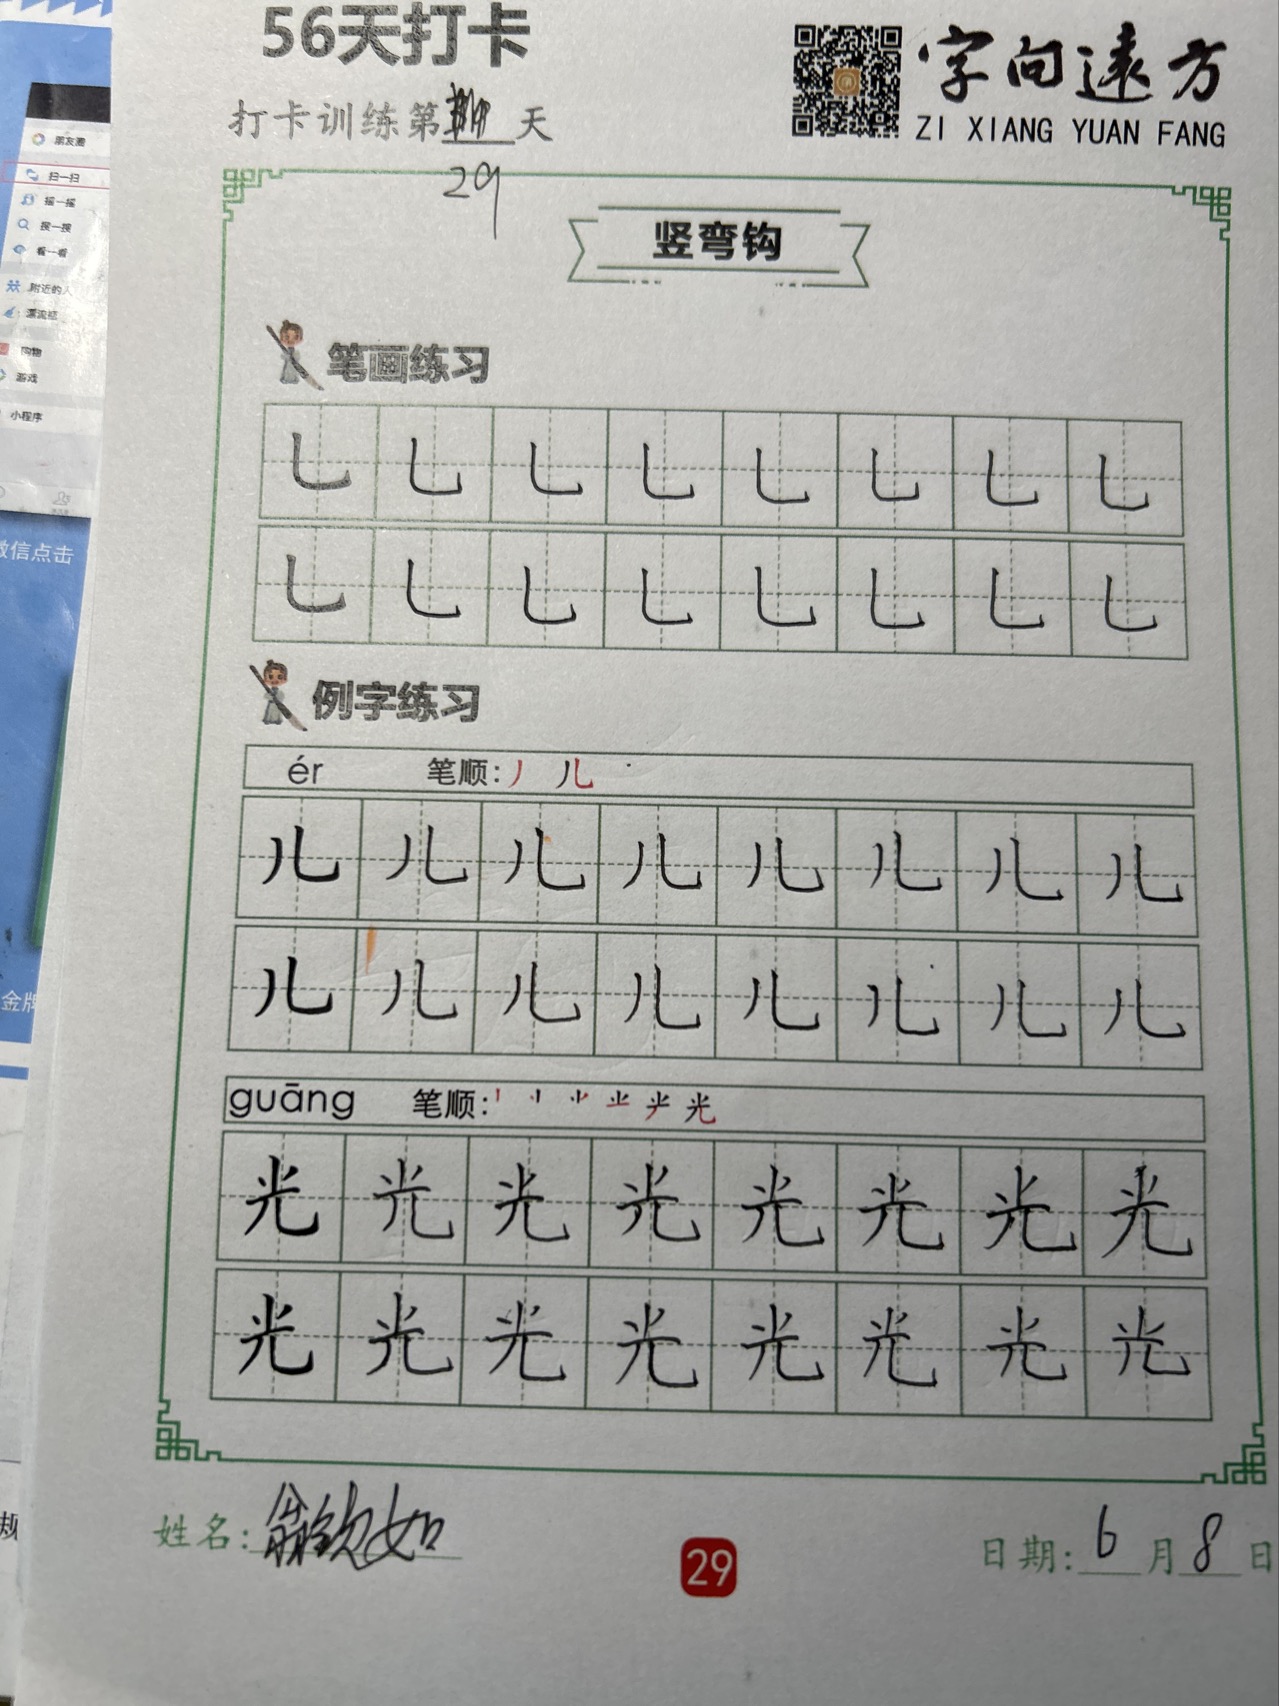 56天打卡
打卡训练第 天
29
字向遠方
ZI XIANG YUAN FANG
朋友圈
扫一扫
摇一摇
搜一搜
看一看
附近的人
漂流瓶
购物
游戏
小程序
微信点击
金牌
规
竖弯钩
笔画练习
乚 乚 乚 乚 乚 乚 乚 乚
乚 乚 乚 乚 乚 乚 乚 乚
例字练习
ér 笔顺: 丿 儿
儿 儿 儿 儿 儿 儿 儿 儿
儿 儿 儿 儿 儿 儿 儿 儿
guāng 笔顺: 光
光 光 光 光 光 光 光 光
光 光 光 光 光 光 光 光
姓名: 翁钦如
29
日期: 6 月 8 日